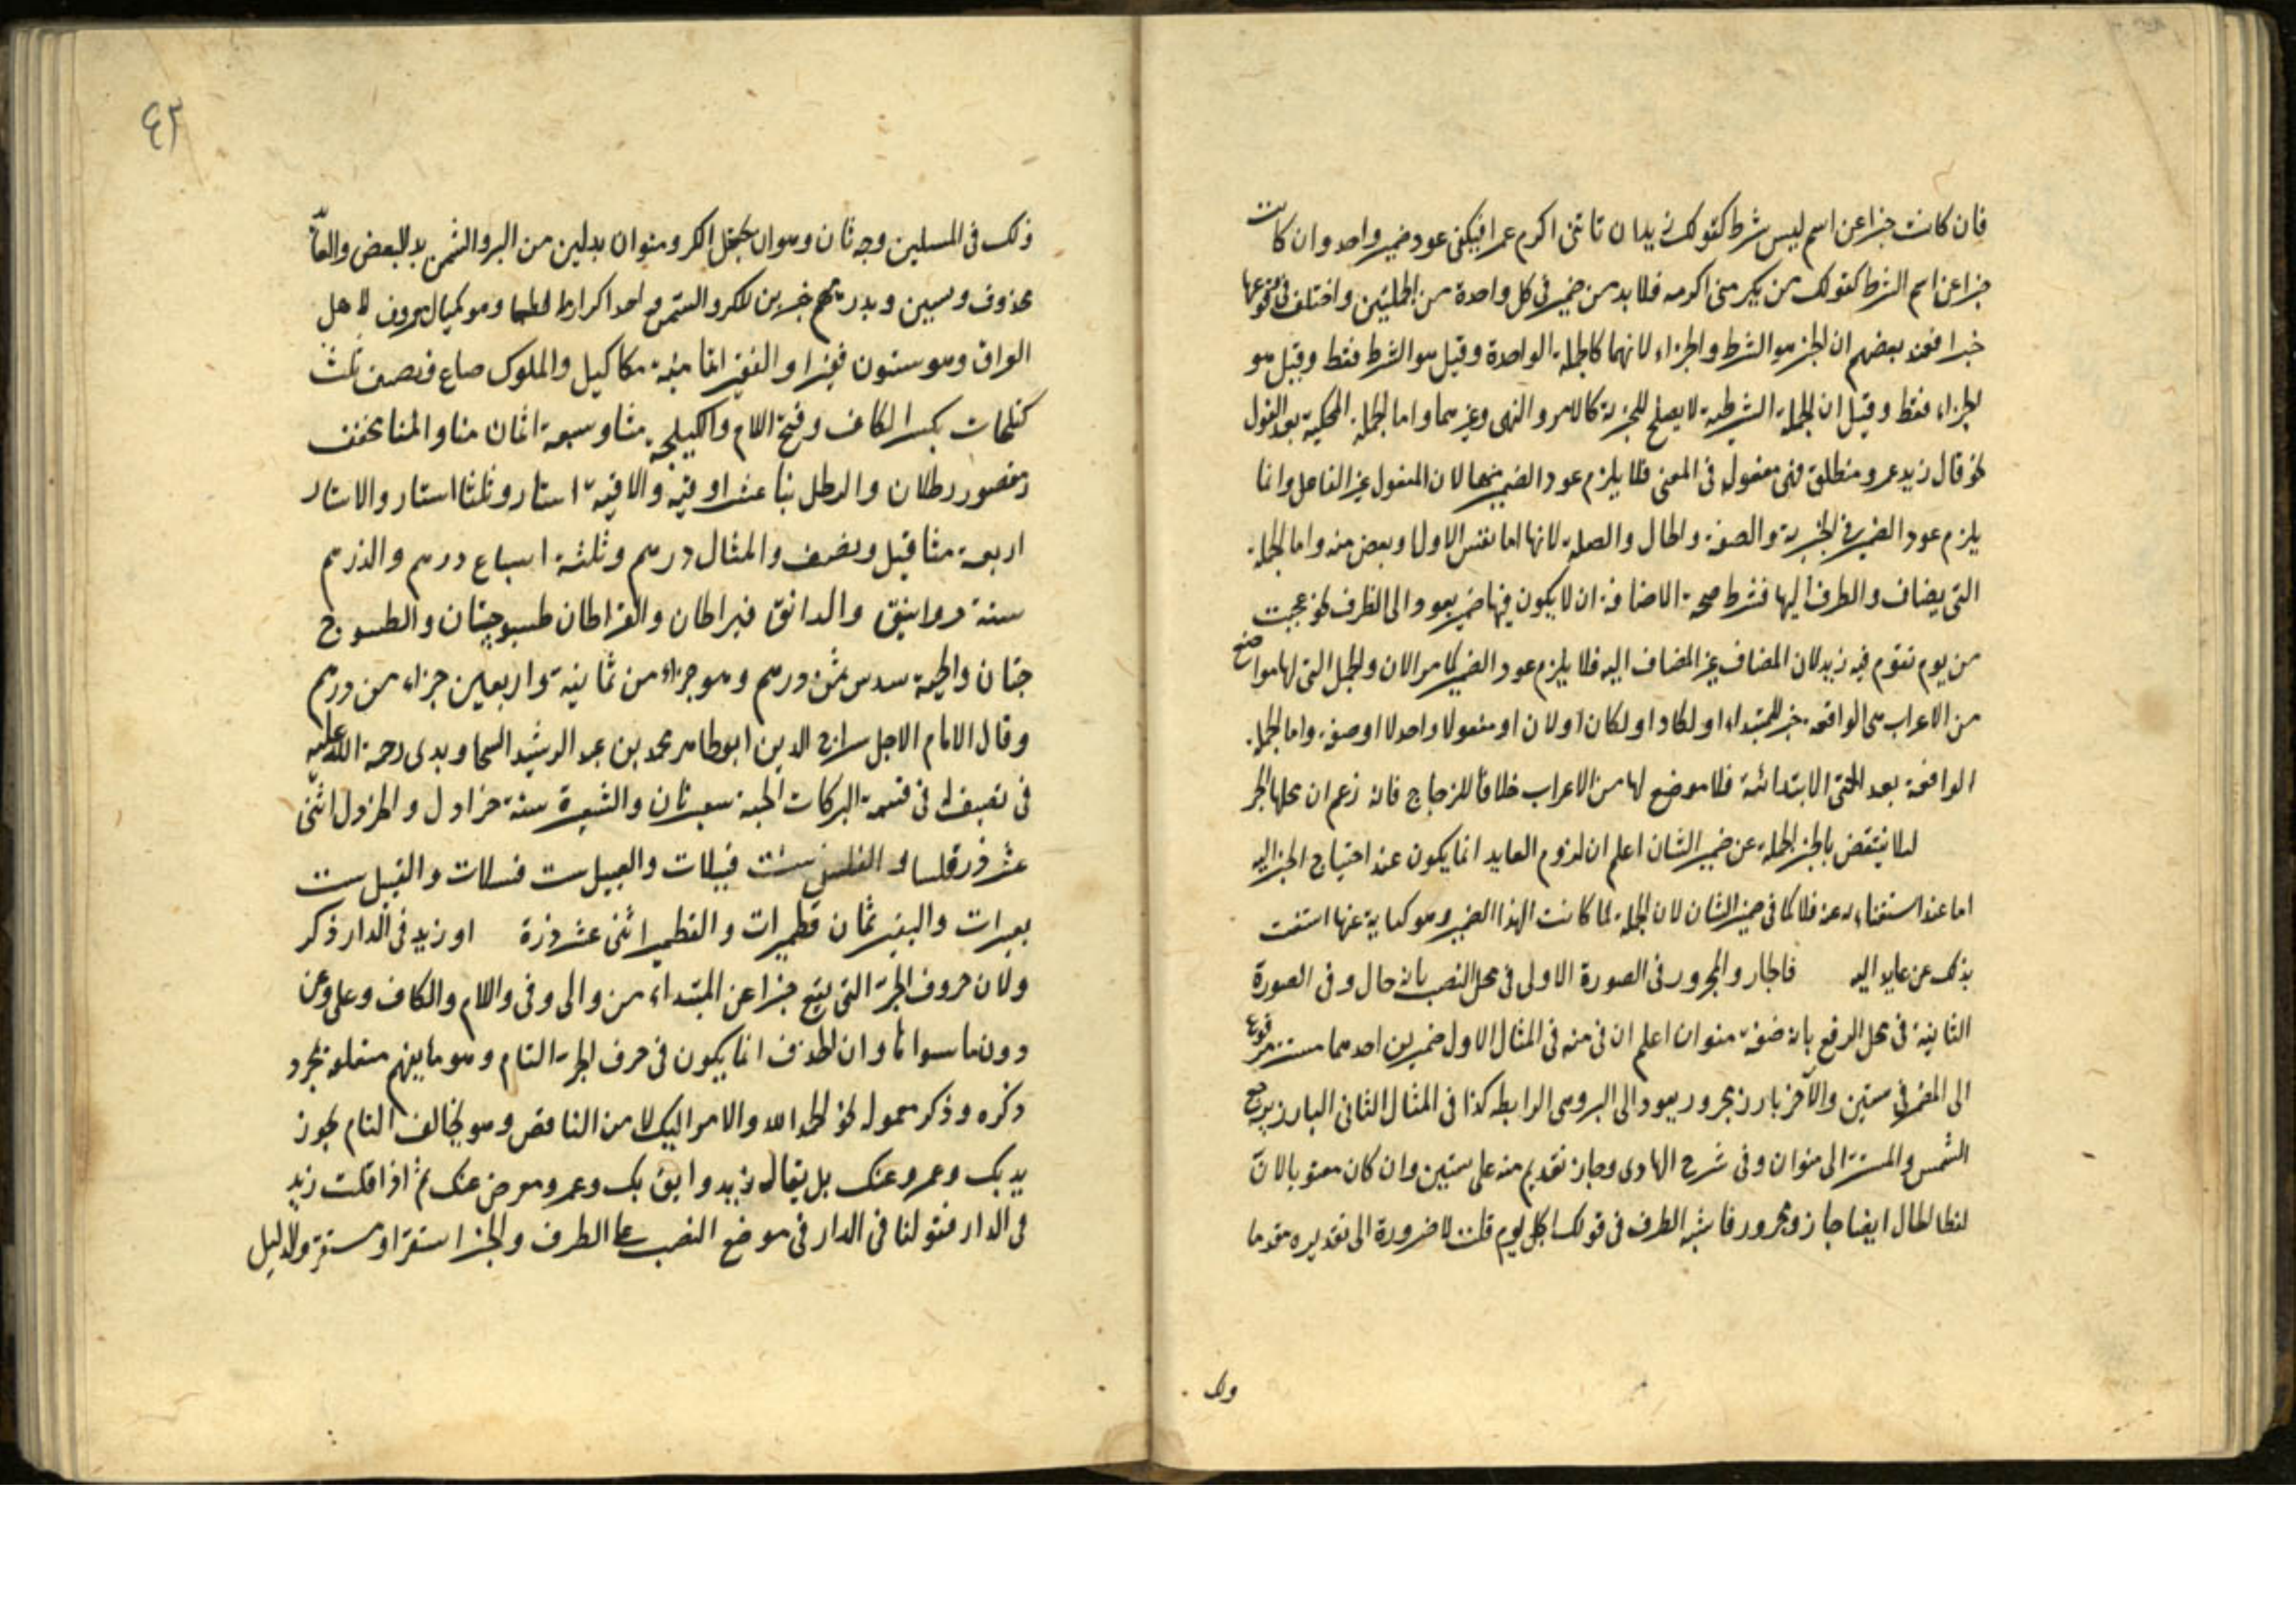 فان كانت خبرا عن اسم ليس بشرط كقولك زيد ان تاتنى اكرم عمرا فيكفى عود ضمير واحد وان كانت
خبرا عن اسم الشرط كقولك من يكرمنى اكرمه فلا بد من ضمير فى كل واحدة من الجملتين واختلف فى وقوعها
خبرا فعند بعضهم ان الخبر هو الشرط والجزاء لانهما كالجملة الواحدة وقيل هو الشرط فقط وقيل هو
الجزاء فقط وقيل ان الجملة الشرطية لا يصلح للخبرية كالامر والنهى وغيرهما واما الجملة المحكية بعد القول
نحو قال زيد عمرو منطلق فهى مفعول فى المعنى فلا يلزم عود الضمير منها لان المفعول غير الفاعل وانما
يلزم عود الضمير فى الخبرية والصفة والحال والصلة لانها اما نفس الاول او بعض منه واما الجملة
التى يضاف والظرف اليها فشرط صحة الاضافة ان لا يكون فيها ضمير يعود الى الظرف نحو عجبت
من يوم تقوم فيه زيد لان المضاف غير المضاف اليه فلا يلزم عود الضمير كما مر الان والجمل التى لها مواضع
من الاعراب هى الواقعة خبر للمبتداء او لكاد او لكان او لان او مفعولا واحدلا او صفة واما الجملة
الواقعة بعد الحتى الابتدائية فلا موضع لها من الاعراب خلافا للزجاج فانه زعم ان محلها الجر
لئلا ينتقض بالخبر الجملة عن ضمير الشان اعلم ان لزوم العايد انما يكون عند احتياج الخبر اليه
اما عند استغنائه عنه فلا كما فى ضمير الشان لان الجملة لما كانت لهذا الضمير وهو كناية عنها استغنت
بذلك عن عايد اليه فالجار والمجرور فى الصورة الاولى فى محل النصب بانه حال وفى الصورة
الثانية فى محل الرفع بانه صفة منوان اعلم ان فى منه فى المثال الاول ضميرين احدهما مستتر مرفوع
الى المضمر فى ستين والآخر بارز مجرور يعود الى البر وهى الرابطة كذا فى المثال الثانى البارز يرجع
السمن والمستتر الى منوان وفى شرح الهادى وجاز تقديم منه على ستين وان كان معنويا لان
لفظ الحال ايضا جار ومجرور فاشبه الظرف فى قولك اكل يوم قلت لا ضرورة الى تقديره مقدما
ولك
٤٢
ذلك فى المسلين وجه ثان وهو ان يجعل الكر ومنوان بدلين من البر والسمن بدل البعض والعائد
محذوف وستين وبدرهم خبرين للكر والسمن واحد اكرار الطعام وهو كيال معروف لاهل
العراق وهو ستون قفيزا والقفيز ثمانية مكاكيل والمكوك صاع ونصف ثلث
كيلجات بكسر الكاف وفتح اللام والكيلجة منا وسبعة اثمان منا والمنا مخفف
مقصور رطلان والرطل اثنا عشر اوقية والاوقية استار وثلثا استار والاستار
اربعة مثاقيل ونصف والمثقال درهم وثلثة اسباع درهم والدرهم
ستة دوانيق والدانق قيراطان والقيراطان طسوجتان والطسوج
حبتان والحبة سدس ثمن درهم وهو جزاء من ثمانية واربعين جزاء من درهم
وقال الامام الاجل سراج الدين ابو طاهر محمد بن عبد الرشيد السجاوندى رحمة الله عليه
فى تصنيف له فى قسمة التركات الحبة شعيرتان والشعيرة ستة خرادل والخردل اثنى
عشر فلسا والفلس ست فتيلات والفتيل ست
نقيرات والنقير ثمان قطميرات والقطمير اثنى عشر ذرة او زيد فى الدار ذكر
ولان حروف الجر التى يقع خبرا عن المبتداء من والى وفى واللام والكاف وعلى وعن
دون ما سواها وان الحذف انما يكون فى حرف الجر التام وهو ما يفهم متعلقه بمجرد
ذكره وذكر معموله نحو الحمد لله والامر اليك لا من الناقص وهو يخالف التام نحو
زيد بك وعمرو عنك بل يقال زيد واثق بك وعمرو معرض عنك ثم اذا قلت زيد
فى الدار فقولنا فى الدار فى موضع النصب على الظرف والخبر استقر او مستقر والدليل